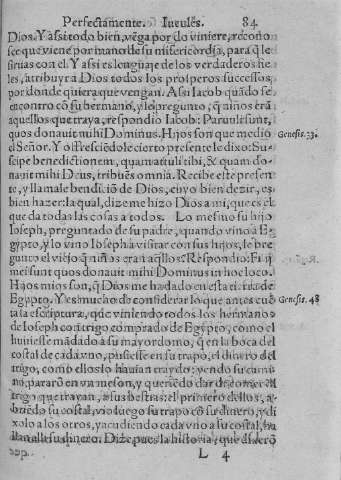 Perfectamente. Iueues. 84
Dios. Y assi todo bien, vẽga por do viniere, recono
sce que viene por mano de su misericordia, para q̃ le
siruas con el. Y assi es lenguaje de los verdaderos fie-
les, atribuyr a Dios todos los prosperos successos,
por donde quiera que vengan. Assi Iacob quãdo se
encontro cõ su hermano, y le pregunto, q̃ niños erã
aquellos que traya, respondio Iacob: Paruuli sunt,
quos donauit mihi Dominus. Hijos son que me dio
el Señor. Y offresciẽdole cierto presente le dixo: Su-
scipe benedictionem, quam attuli tibi, & quam do-
nauit mihi Deus, tribuẽs omnia. Recibe este presen-
te, y llamale bendiciõ de Dios, cuyo bien dezir, es
bien hazer: la qual, dize me hizo Dios a mi, que es el
que da todas las cosas a todos. Lo mesmo su hijo
Ioseph, preguntado de su padre, quando vino a E-
gypto, y lo vino Ioseph a visitar con sus hijos, le pre-
gunto el viejo q̃ niños eran aq̃llos. Respondio: Fi ij
mei sunt quos donauit mihi Dominus in hoc loco.
Hijos mios son, q̃ Dios me ha dado en esta tierra de
Egypto. Y es mucho de considerar lo que antes cuẽ
ta la escriptura, que viniendo todos los hermanos
de Ioseph con trigo comprado de Egypto, como el
huuiesse mãdado a su mayordomo, q̃ en la boca del
costal de cada vno, pusiesse en su trapo, el dinero del
trigo, como ellos lo hauian traydo: yendo su cami-
no, pararõ en vn meson, y queriẽdo dar de comer el
trigo que trayan, a sus bestias: el primero dellos, a-
briẽdo su costal, vio luego su trapo cõ su dinero, y di
xolo a los otros, y acudiendo cada vno a su costal, ha
llan alli su dinero. Dize pues la historia, que dixerõ
L 4
Genesis. 33.
Genesis. 48